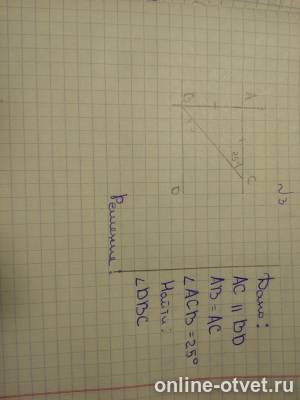 №3
Дано:
AC || BD
AB = AC
∠ACB = 25°
Найти:
∠DBC
Решение:
A
B
25°
C
D
online-otvet.ru